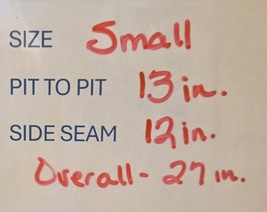 SIZE Small
PIT TO PIT 13 in.
SIDE SEAM 12 in.
Overall - 27 in.